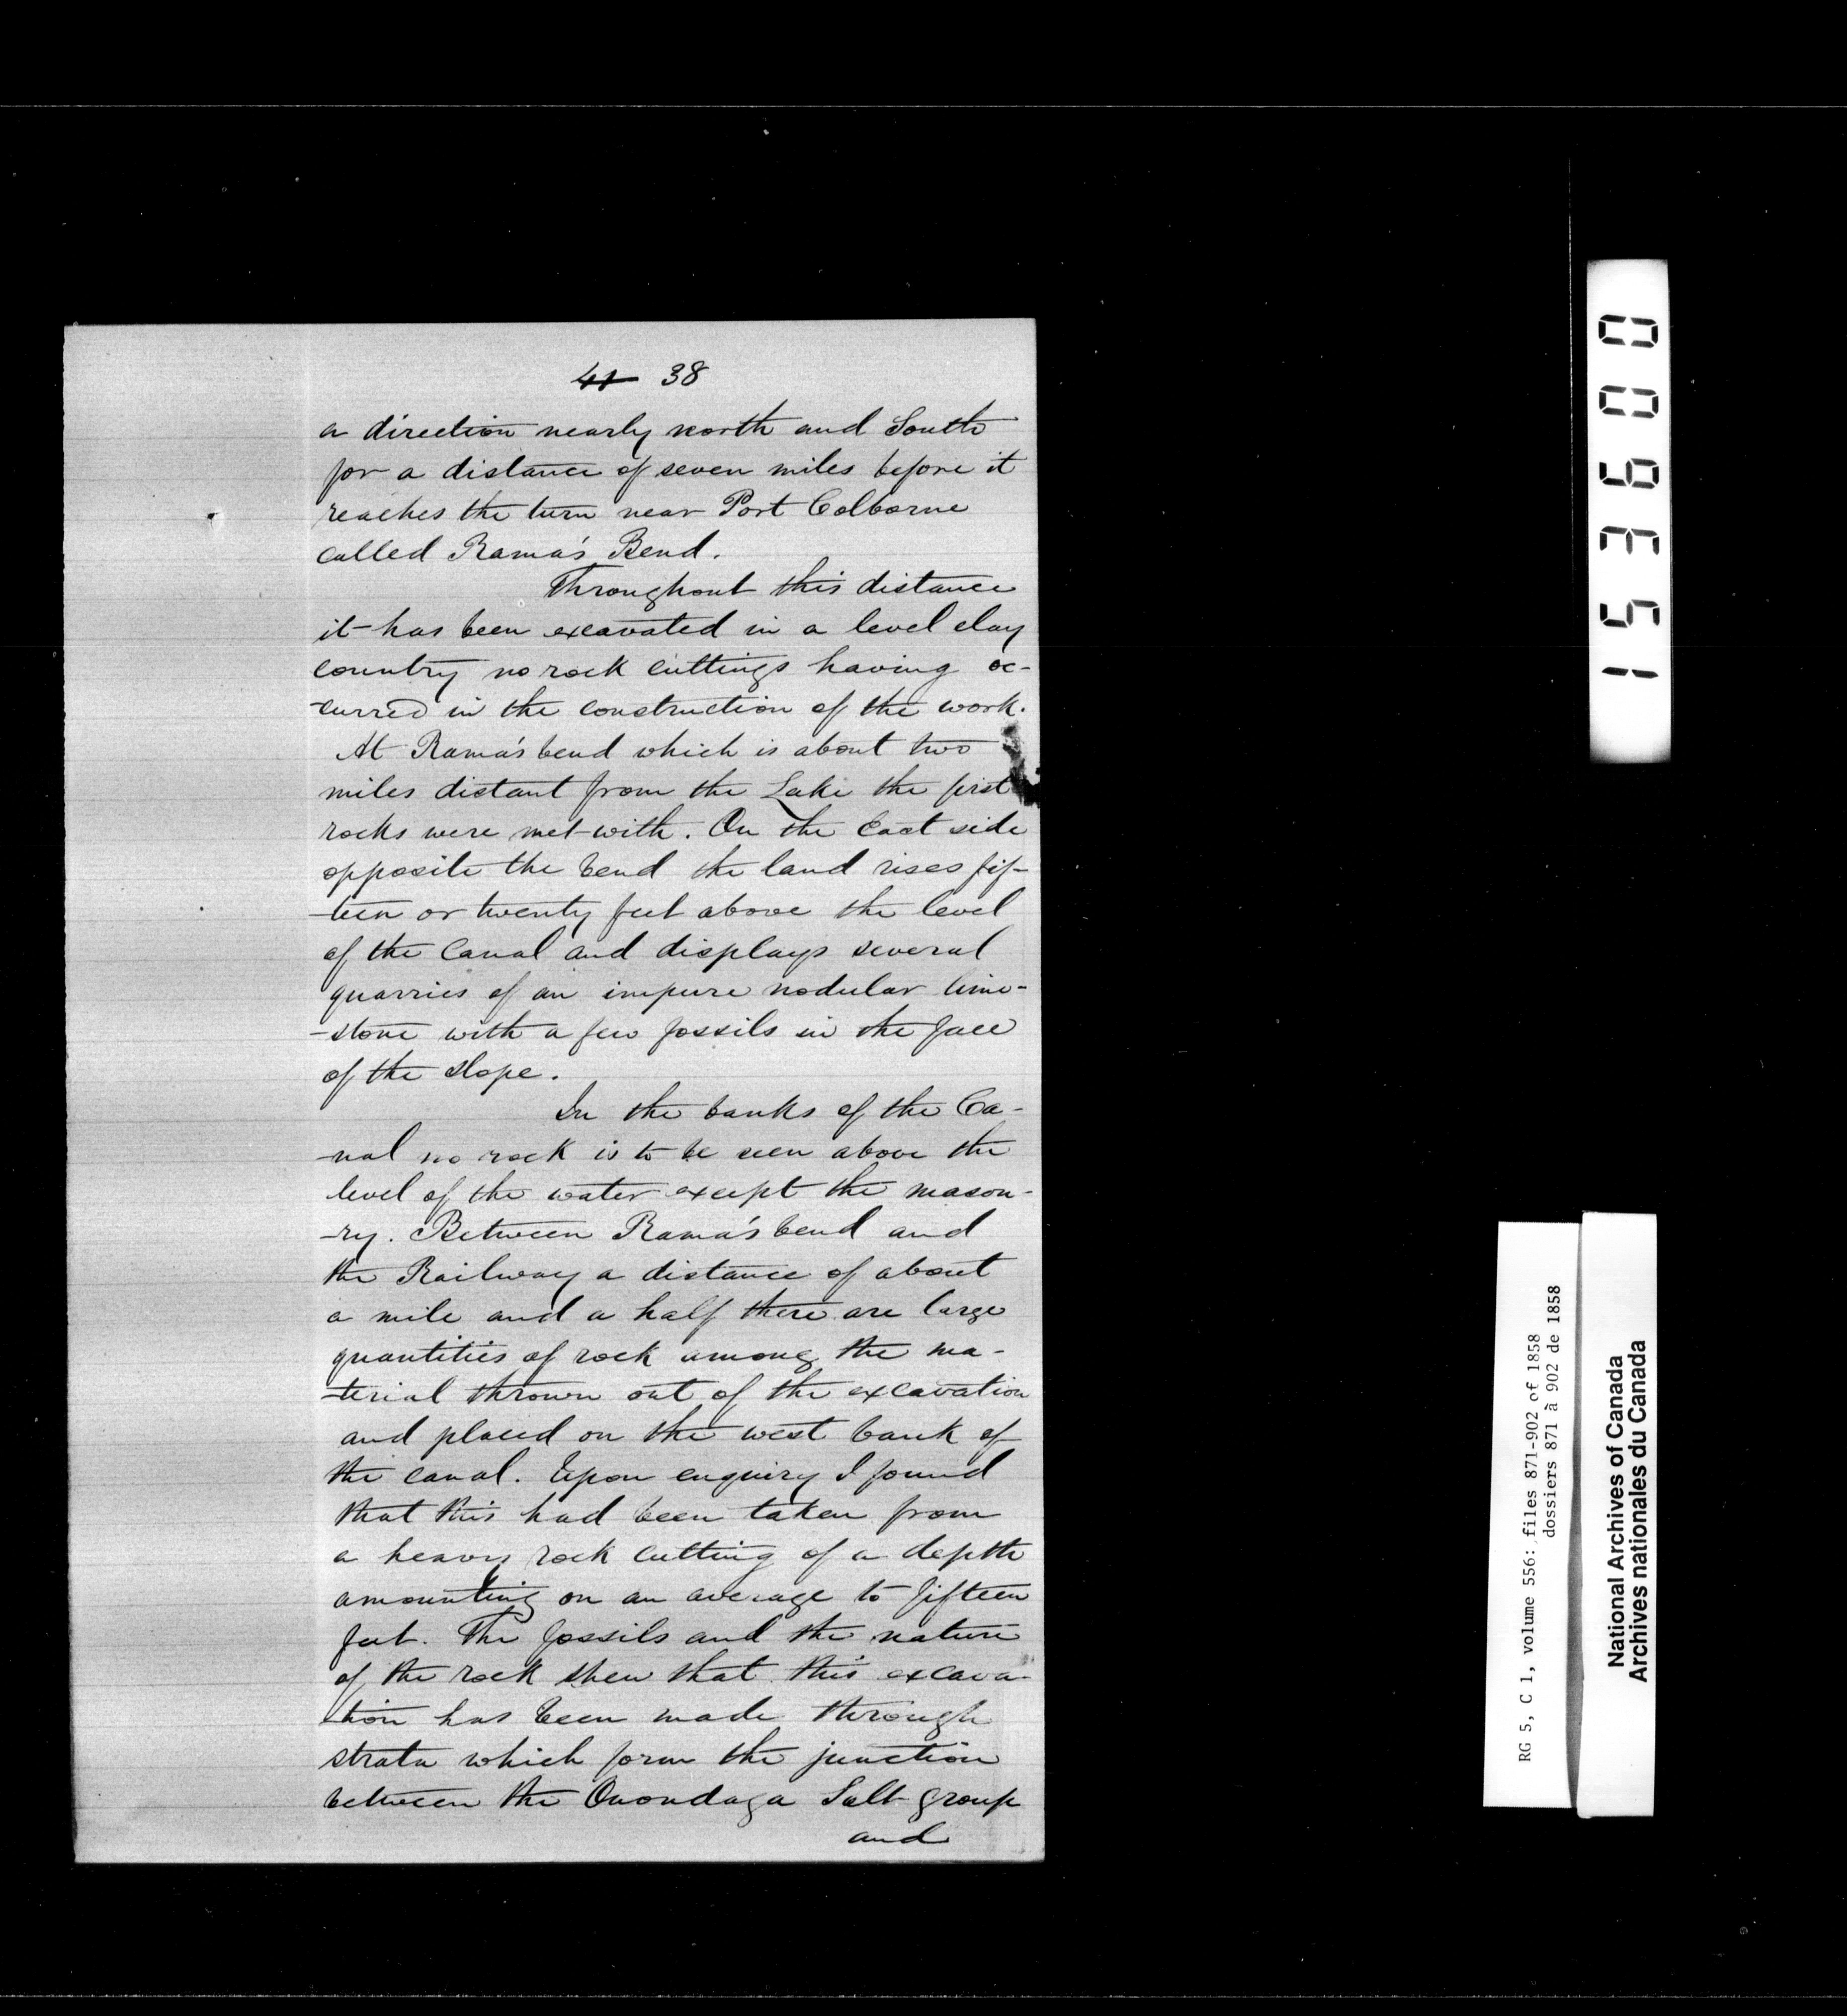 41 38
a direction nearly north and South
for a distance of seven miles before it
reaches the turn near Port Colborne
called Rama's Bend.
Throughout this distance
it has been excavated in a level clay
country no rock cuttings having oc-
-curred in the construction of the work.
At Rama's bend which is about two
miles distant from the Lake the first
rocks were met with. On the East side
opposite the bend the land rises fif-
-teen or twenty feet above the level
of the Canal and displays several
quarries of an impure nodular lime-
-stone with a few fossils in the face
of the slope.
In the banks of the Ca-
-nal no rock is to be seen above the
level of the water except the mason-
-ry. Between Rama's bend and
the Railway a distance of about
a mile and a half there are large
quantities of rock among the ma-
-terial thrown out of the excavation
and placed on the west bank of
the canal. Upon enquiry I found
that this had been taken from
a heavy rock cutting of a depth
amounting on an average to fifteen
feet. The fossils and the nature
of the rock shew that this excava-
-tion has been made through
strata which form the junction
between the Onondaga Salt group
and
153600
RG 5, C 1, volume 556: files 871-902 of 1858
dossiers 871 à 902 de 1858
National Archives of Canada
Archives nationales du Canada